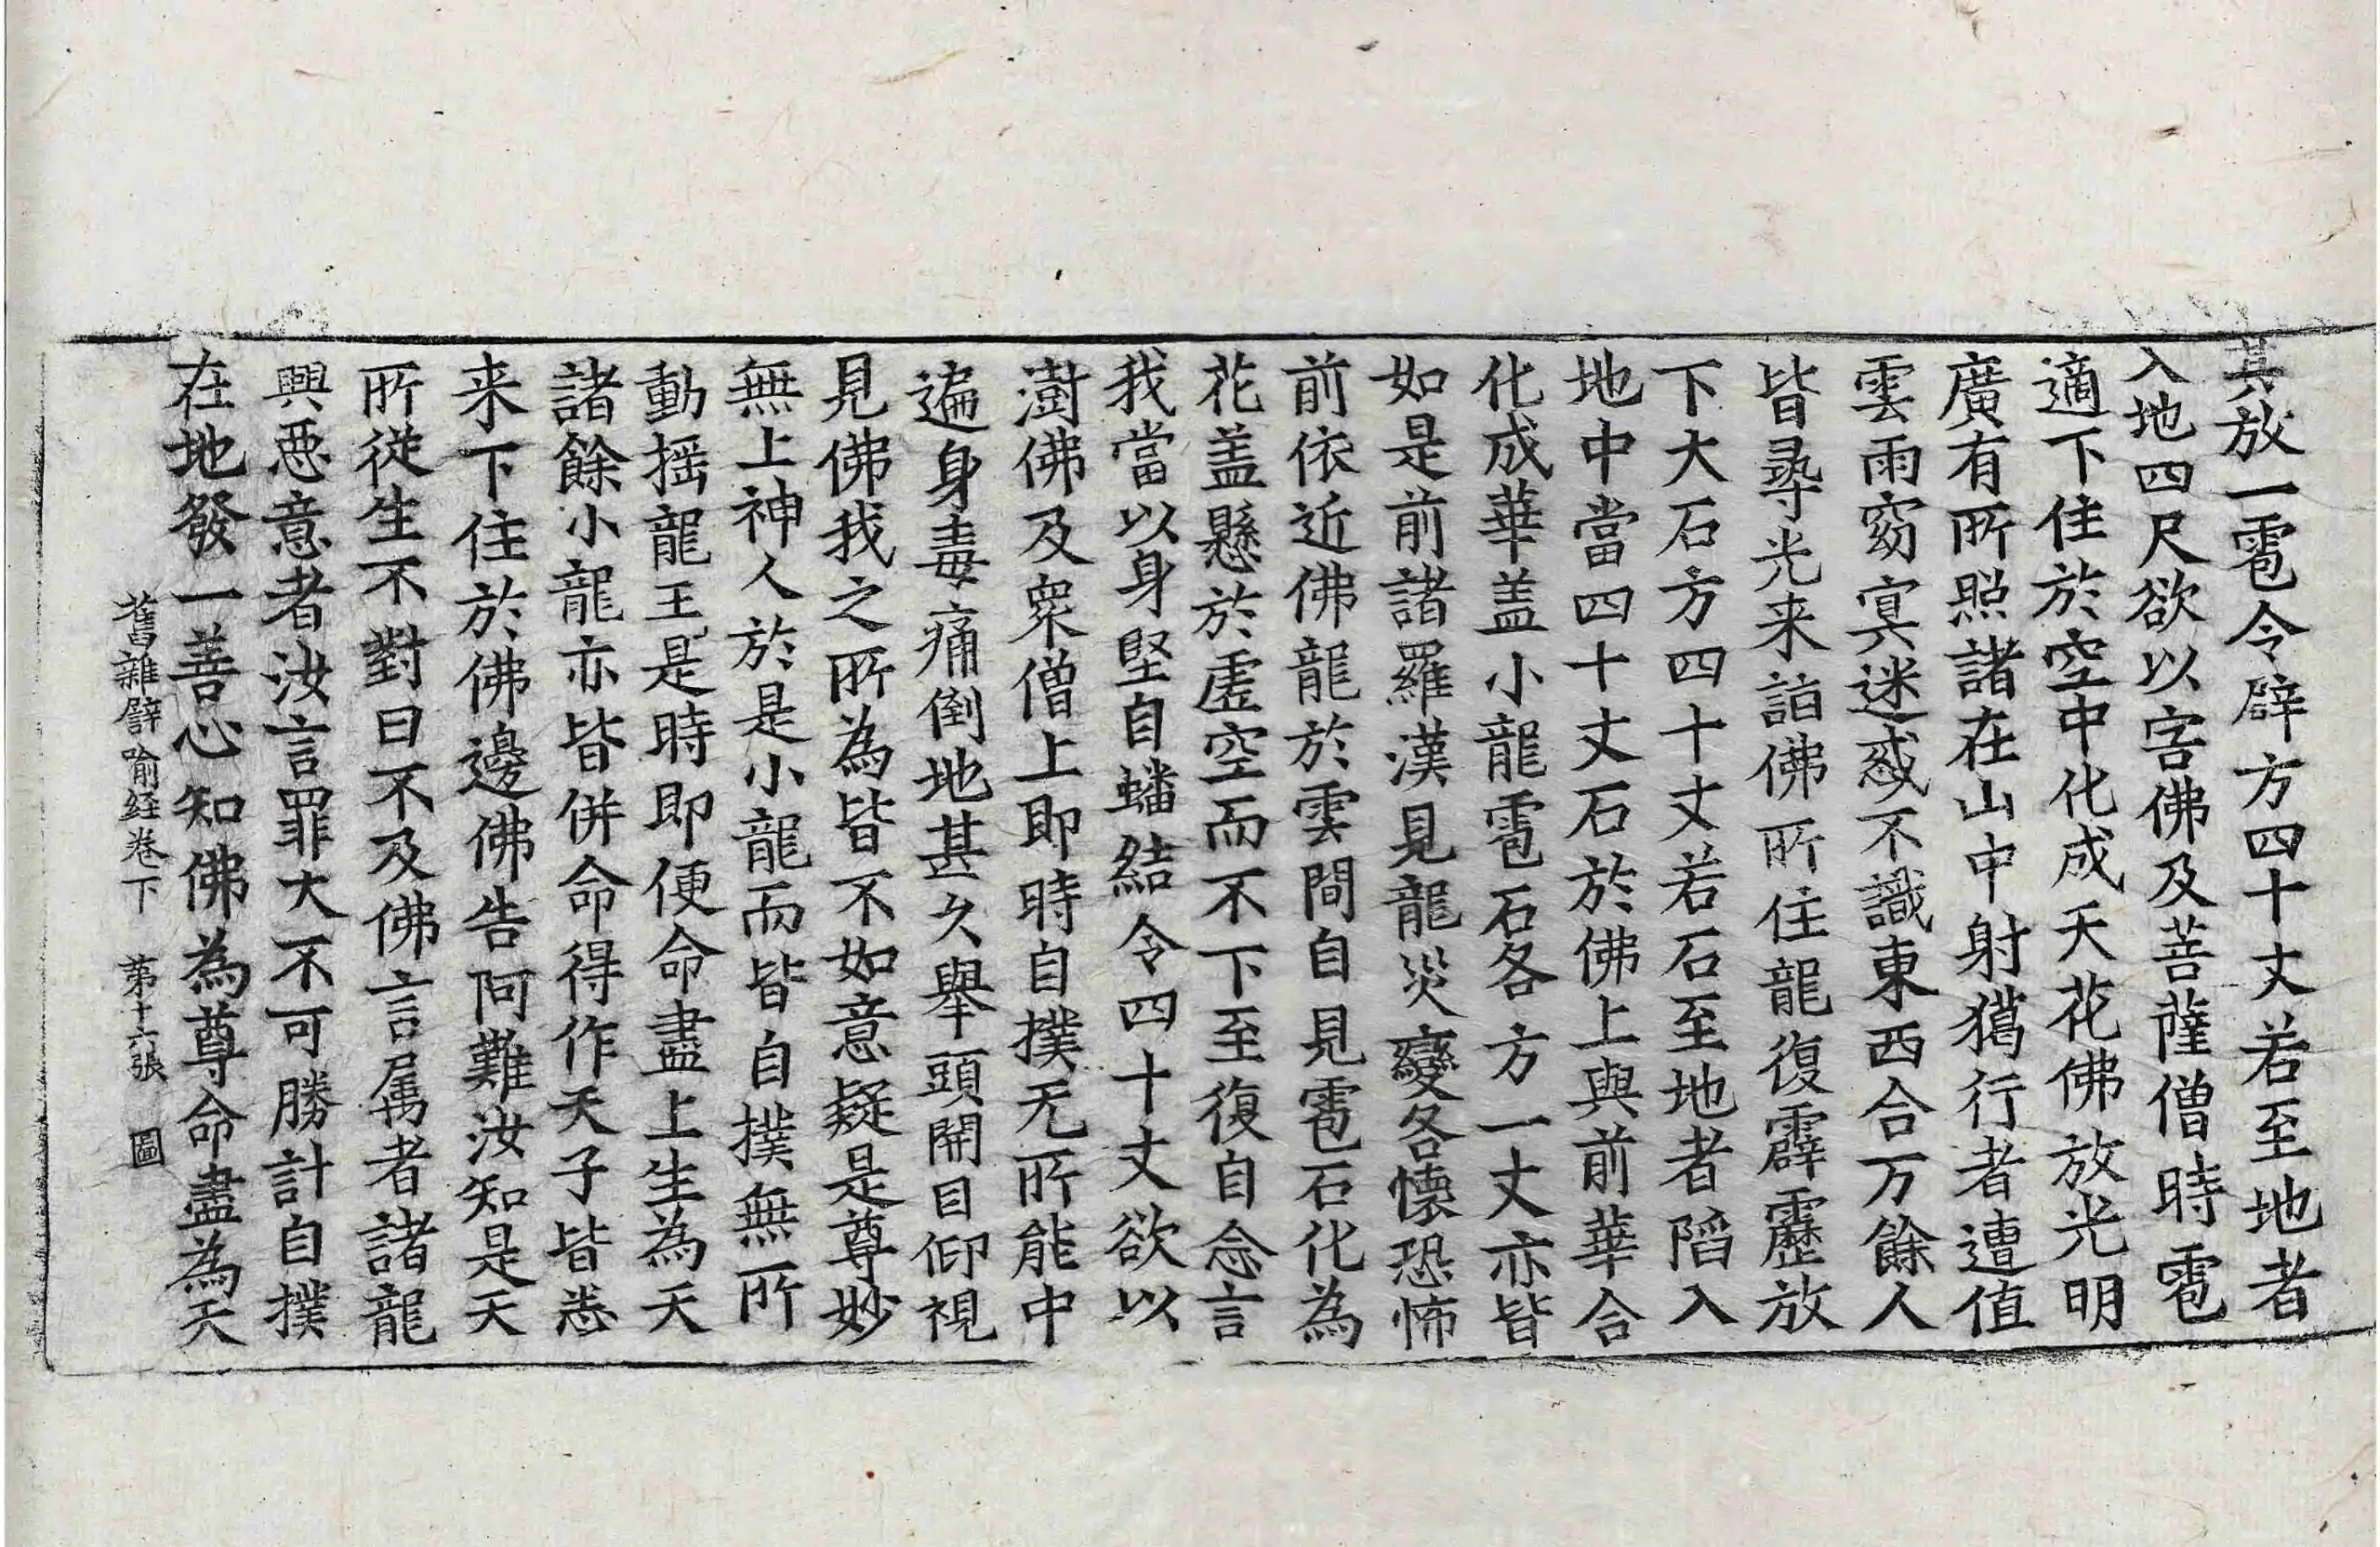 其放一雹令辟方四十丈若至地者
入地四尺欲以害佛及菩薩僧時雹
適下住於空中化成天花佛放光明
廣有所照諸在山中射獦行者遭值
雲雨窈冥迷惑不識東西合万餘人
皆尋光来詣佛所住龍復霹靂放
下大石方四十丈若石至地者陷入
地中當四十丈石於佛上與前華合
化成華盖小龍雹石各方一丈亦皆
如是前諸羅漢見龍災變各懷恐怖
前依近佛龍於雲間自見雹石化為
花盖懸於虛空而不下至復自念言
我當以身堅自蟠結令四十丈欲以
澍佛及衆僧上即時自撲无所能中
遍身毒痛倒地甚久舉頭開目仰視
見佛我之所為皆不如意疑是尊妙
無上神人於是小龍而皆自撲無所
動揺龍王是時即便命盡上生為天
諸餘小龍亦皆併命得作天子皆悉
来下住於佛邊佛告阿難汝知是天
所從生不對曰不及佛言属者諸龍
興惡意者汝言罪大不可勝計自撲
在地發一善心知佛為尊命盡為天
舊雜譬喻経卷下 第十六張 圖